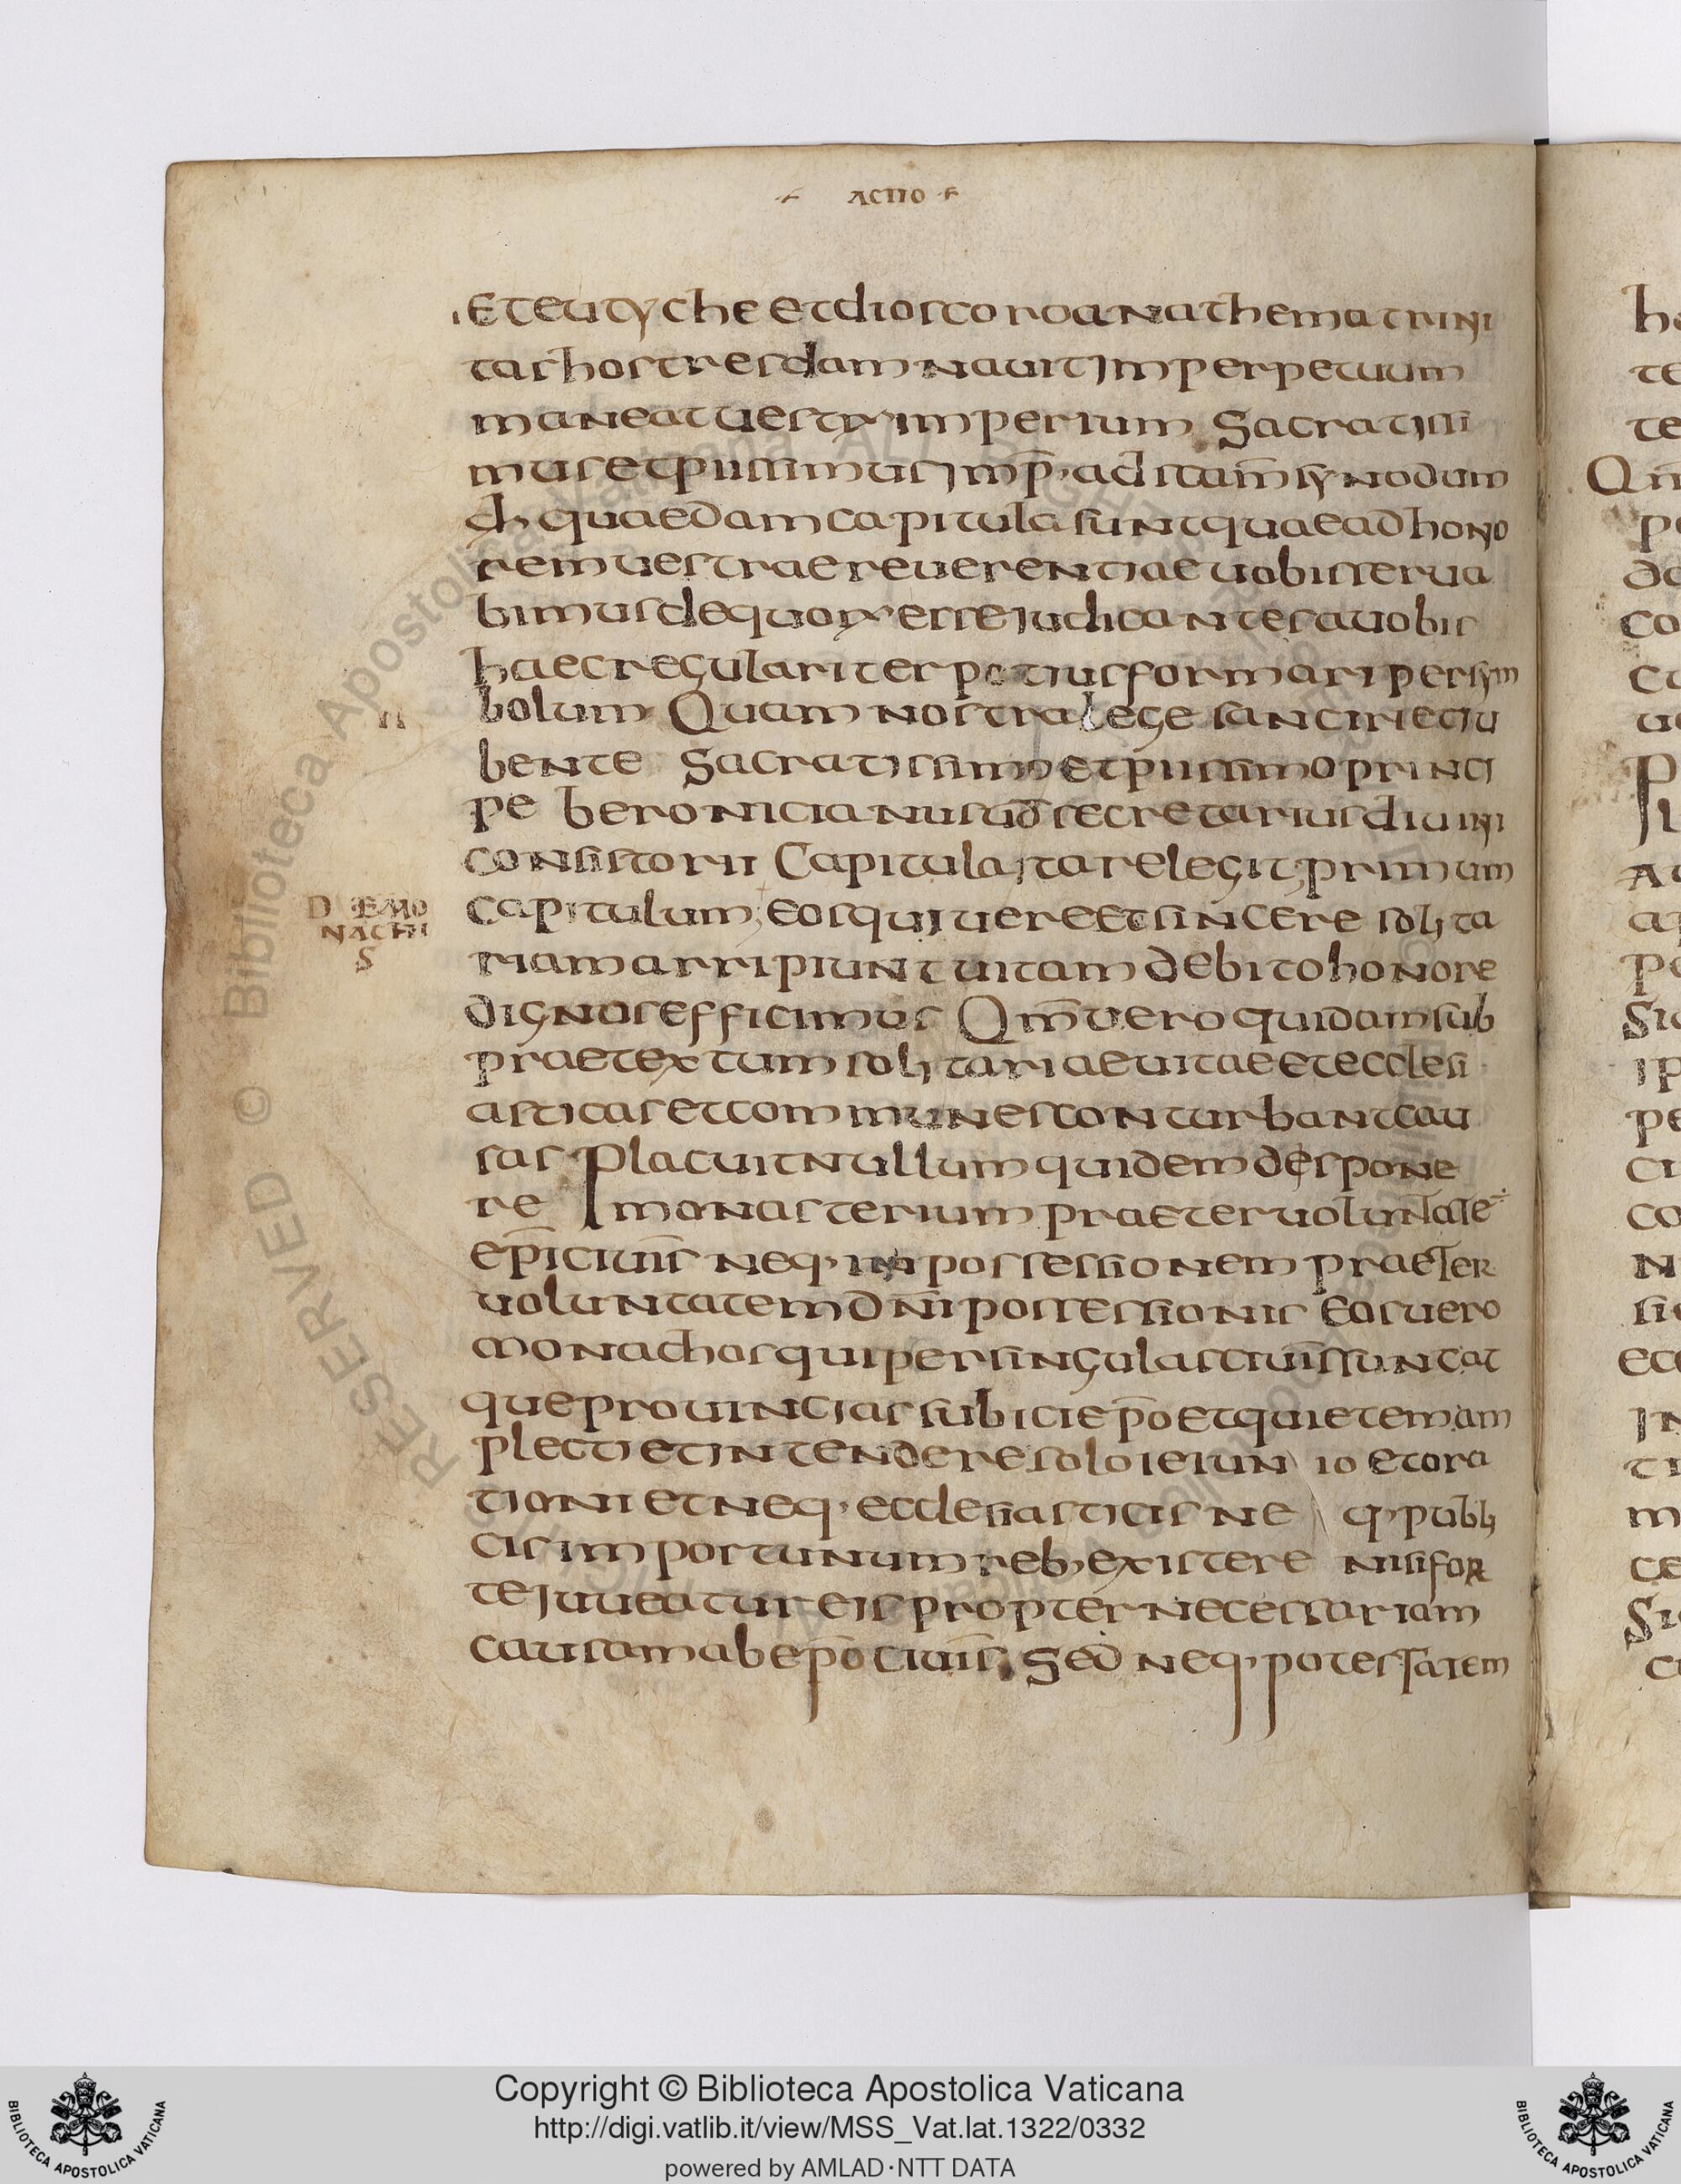 ACTIO
et eutyche et dioscoro anathema trini
tas hos tres damnauit Imperpetuum
maneat uestrx imperium Sacratissi
mus et piissimus imp̄· ad s̄c̄am synodum
d̄· quaedam capitula sunt quae ad hono
rem uestrae reuerentiae uobis serua
bimus dequorx esse iudicantes a uobis
haec regulariter potius formari per syn
bolum Quam nostra lege sanciri et iu
bente Sacratissimo et piissimo princi
pe beronicianus uð secretarius diuini
consistorii Capitula ita relegit; primum
II
capitulum; eos qui uere et sincere solita
DE MO
NACHI
S
riam arripiunt uitam debito honore
dignos efficimus Qm̄ uero quidam sub
praetextum solitariae uitae et eclesi
asticas et communes conturbant cau
sas Placuit nullum quidem despone
re monasterium praeter uoluntate
ep̄i ciuiƭ neq· in possessionem praeter
uoluntatem dn̄i possessionis Eos uero
monachos qui per singulas ciuit̄ sunt at
que prouincias subici ep̄o et quietem am
plecti et intendere solo ieiunio et ora
tioni et neq· ecclesiasticis neq· publi
cis importunum reb· existere nisi for
te iuueatur eis propter necessariam
causam ab ep̄o ciuit̄; Sed neq· potestatem
Copyright © Biblioteca Apostolica Vaticana
http://digi.vatlib.it/view/MSS_Vat.lat.1322/0332
powered by AMLAD·NTT DATA
BIBLIOTECA APOSTOLICA VATICANA
BIBLIOTECA APOSTOLICA VATICANA